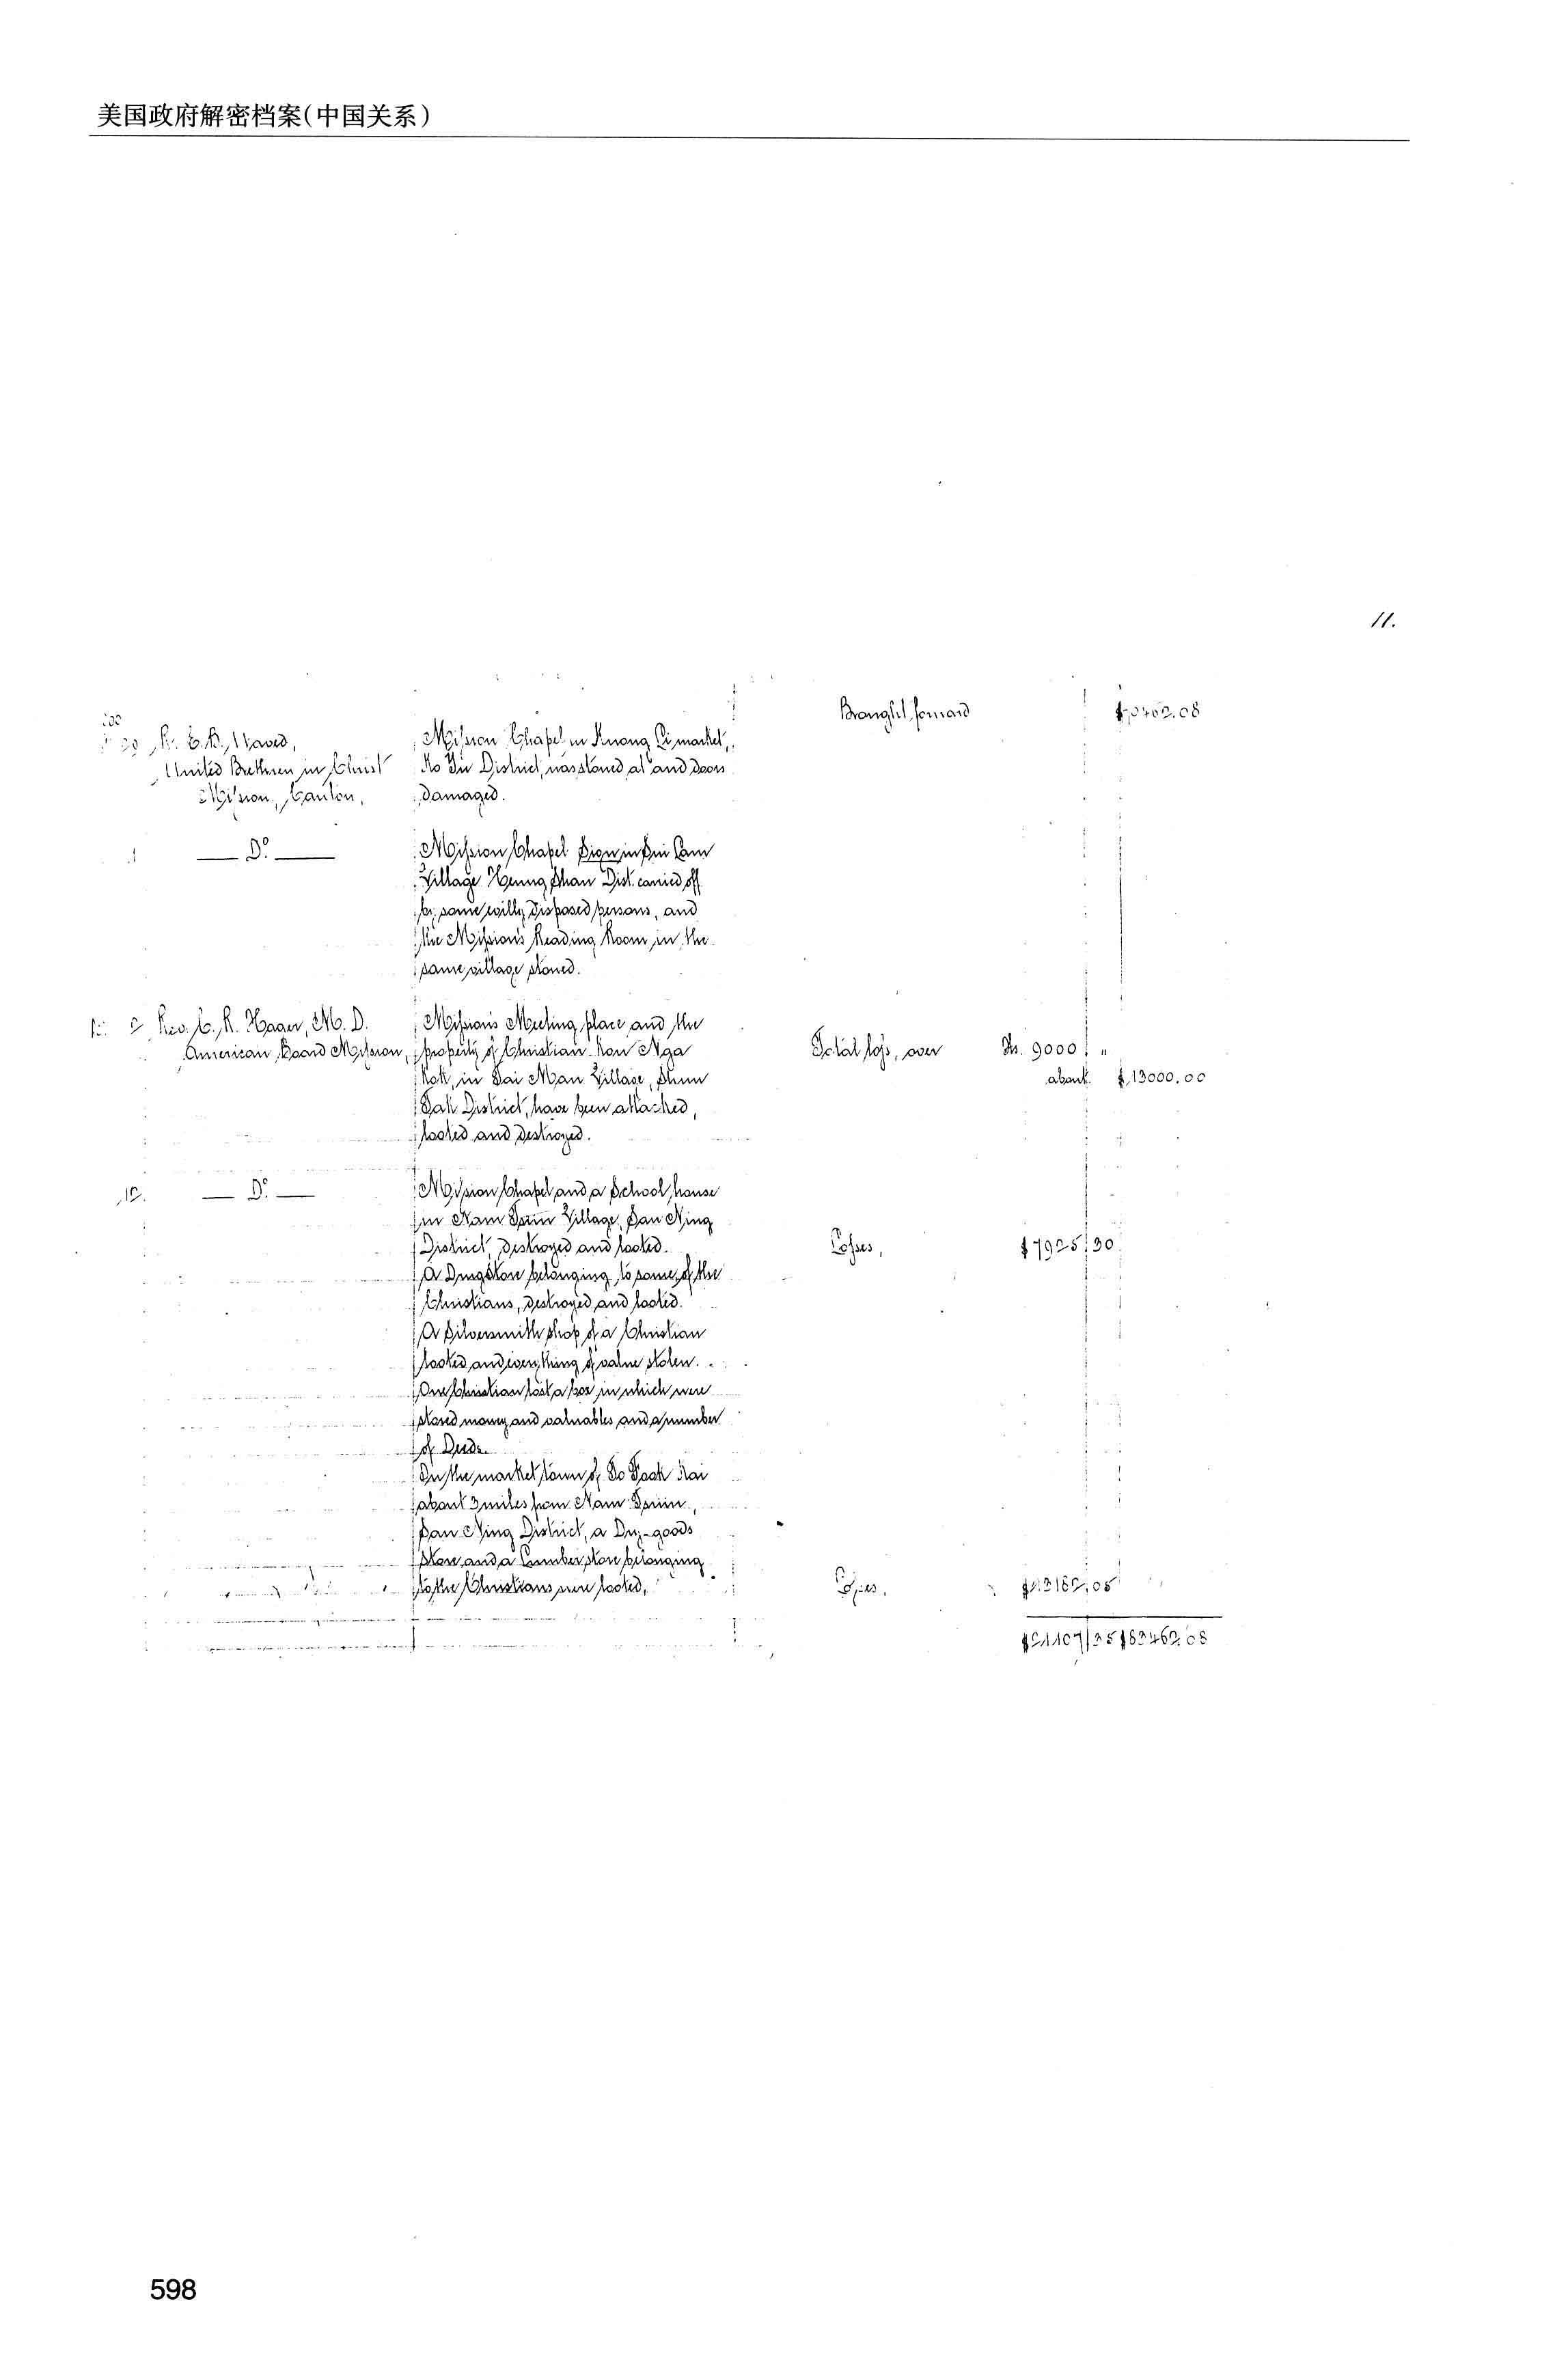 美国政府解密档案(中国关系)
11.
Brought forward
Mission Chapel in Kuong Li market,
United Brethren in Christ
Ko In District, was stoned at and doors
Mission, Canton,
damaged.
— Do. —
Mission Chapel Sign in Sui Lam
Village Heung Shan Dist. carried off
by some evilly disposed persons, and
the Mission's Reading Room, in the
same village stoned.
Rev. C. R. Hager, M. D.
American Board Mission,
Mission's Meeting place and the
property of Christian Kou Nga
Kok, in Tai Man Village, Shun
Tak District, have been attacked,
looted and destroyed.
Total loss, over
Tls. 9000 "
about $13000.00
12. — Do. —
Mission Chapel and a School house
in Nam Village, San Ning
District, destroyed and looted.
Losses, $7925 30
A Drug Store belonging to some of the
Christians, destroyed and looted.
A Silversmith shop of a Christian
looted and everything of value stolen.
One Christian lost a box in which were
stored money and valuables and a number
of Deeds.
In the market town of Kai
about 3 miles from Nam
San Ning District, a Dry-goods
Store and a Lumber store belonging
to the Christians were looted,
Losses,
598